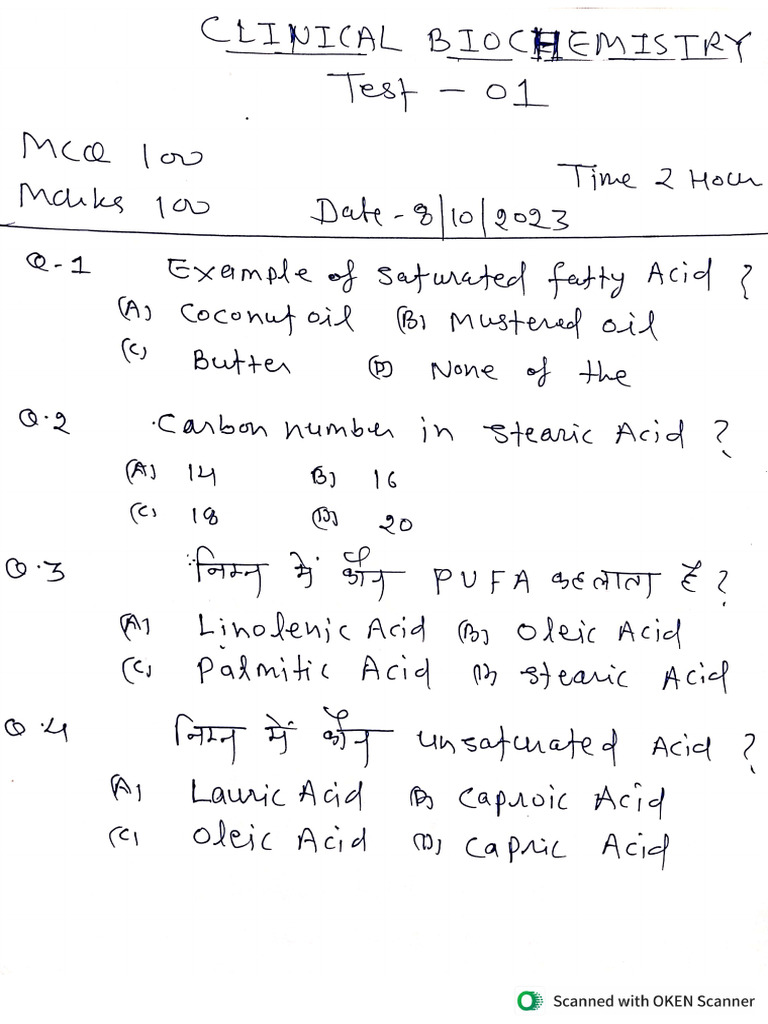 CLINICAL BIOCHEMISTRY
Test - 01
MCQ 100
Time 2 Hour
Marks 100 Date - 8/10/2023
Q-1 Example of saturated fatty Acid ?
(A) Coconut oil (B) Mustered oil
(C) Butter (D) None of the
Q.2 Carbon number in Stearic Acid ?
(A) 14 (B) 16
(C) 18 (D) 20
Q.3 निम्न में कौन PUFA कहलाता है ?
(A) Linolenic Acid (B) Oleic Acid
(C) Palmitic Acid (D) Stearic Acid
Q.4 निम्न में कौन unsaturated Acid ?
(A) Lauric Acid (B) Caproic Acid
(C) Oleic Acid (D) Capric Acid
Scanned with OKEN Scanner